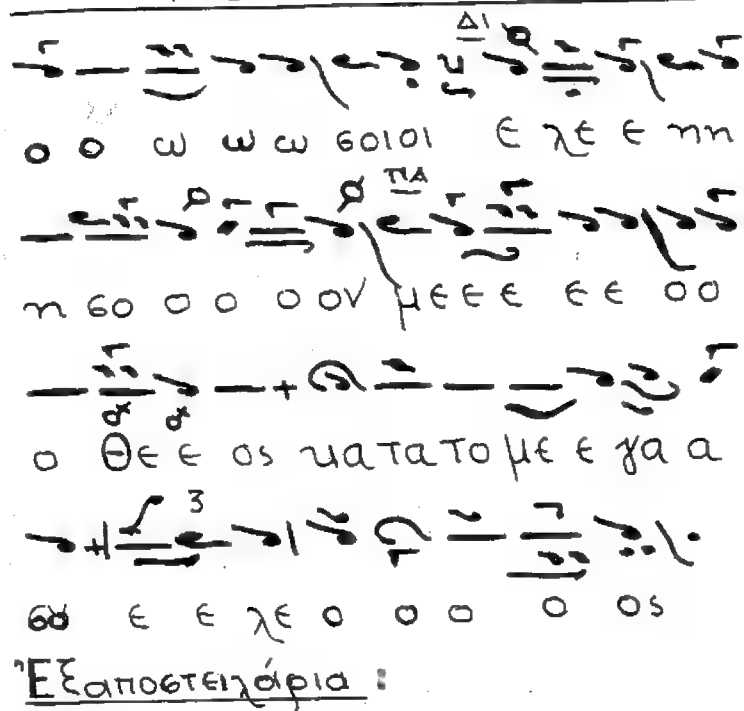 Δι
ο ο ω ω ω σοιοι ε λε ε ηη
πα
η σο ο ο ο ον με ε ε ε ε ο ο
ο Θε ε ος κατατο με ε γα α
3
σȣ ε ε λε ο ο ο ο ος
Ἐξαποστειλάρια :